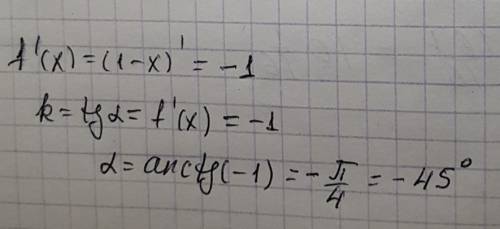 f'(x) = (1-x)' = -1
k = tg α = f'(x) = -1
α = arctg(-1) = -π/4 = -45°